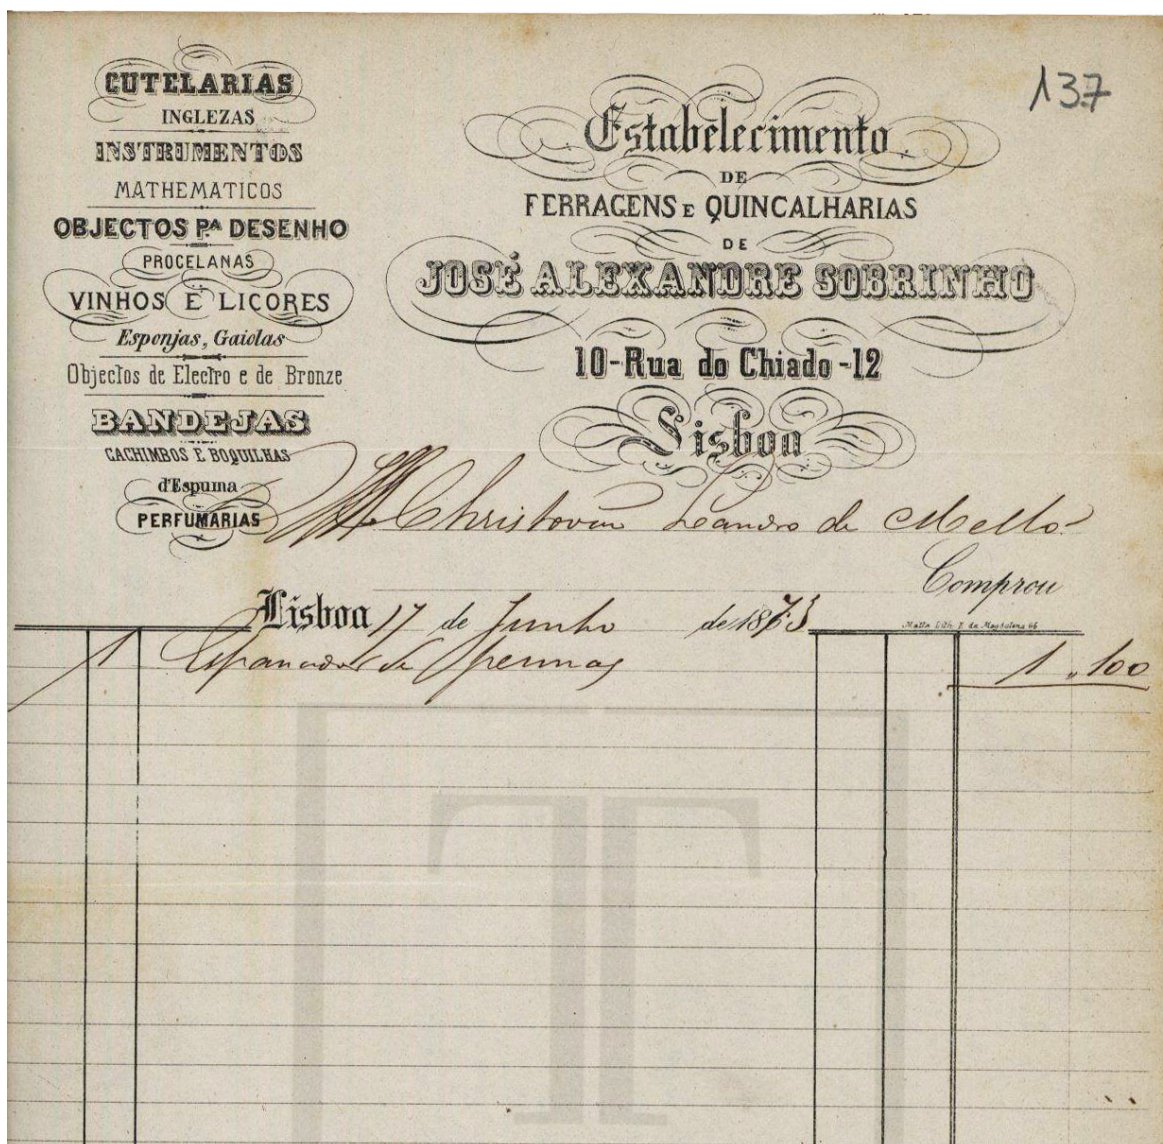 137
CUTELARIAS
INGLEZAS
INSTRUMENTOS
MATHEMATICOS
OBJECTOS Pᴬ DESENHO
PROCELANAS
VINHOS E LICORES
Esponjas, Gaiolas
Objectos de Electro e de Bronze
BANDEJAS
CACHIMBOS E BOQUILHAS
d'Espuma
PERFUMARIAS
Estabelecimento
DE
FERRAGENS E QUINCALHARIAS
DE
JOSÉ ALEXANDRE SOBRINHO
10-Rua do Chiado-12
Lisboa
Christovão Leandro de Mello
Comprou
Lisboa 17 de Junho de 1873
1 Espanador de pennas 1 " 100